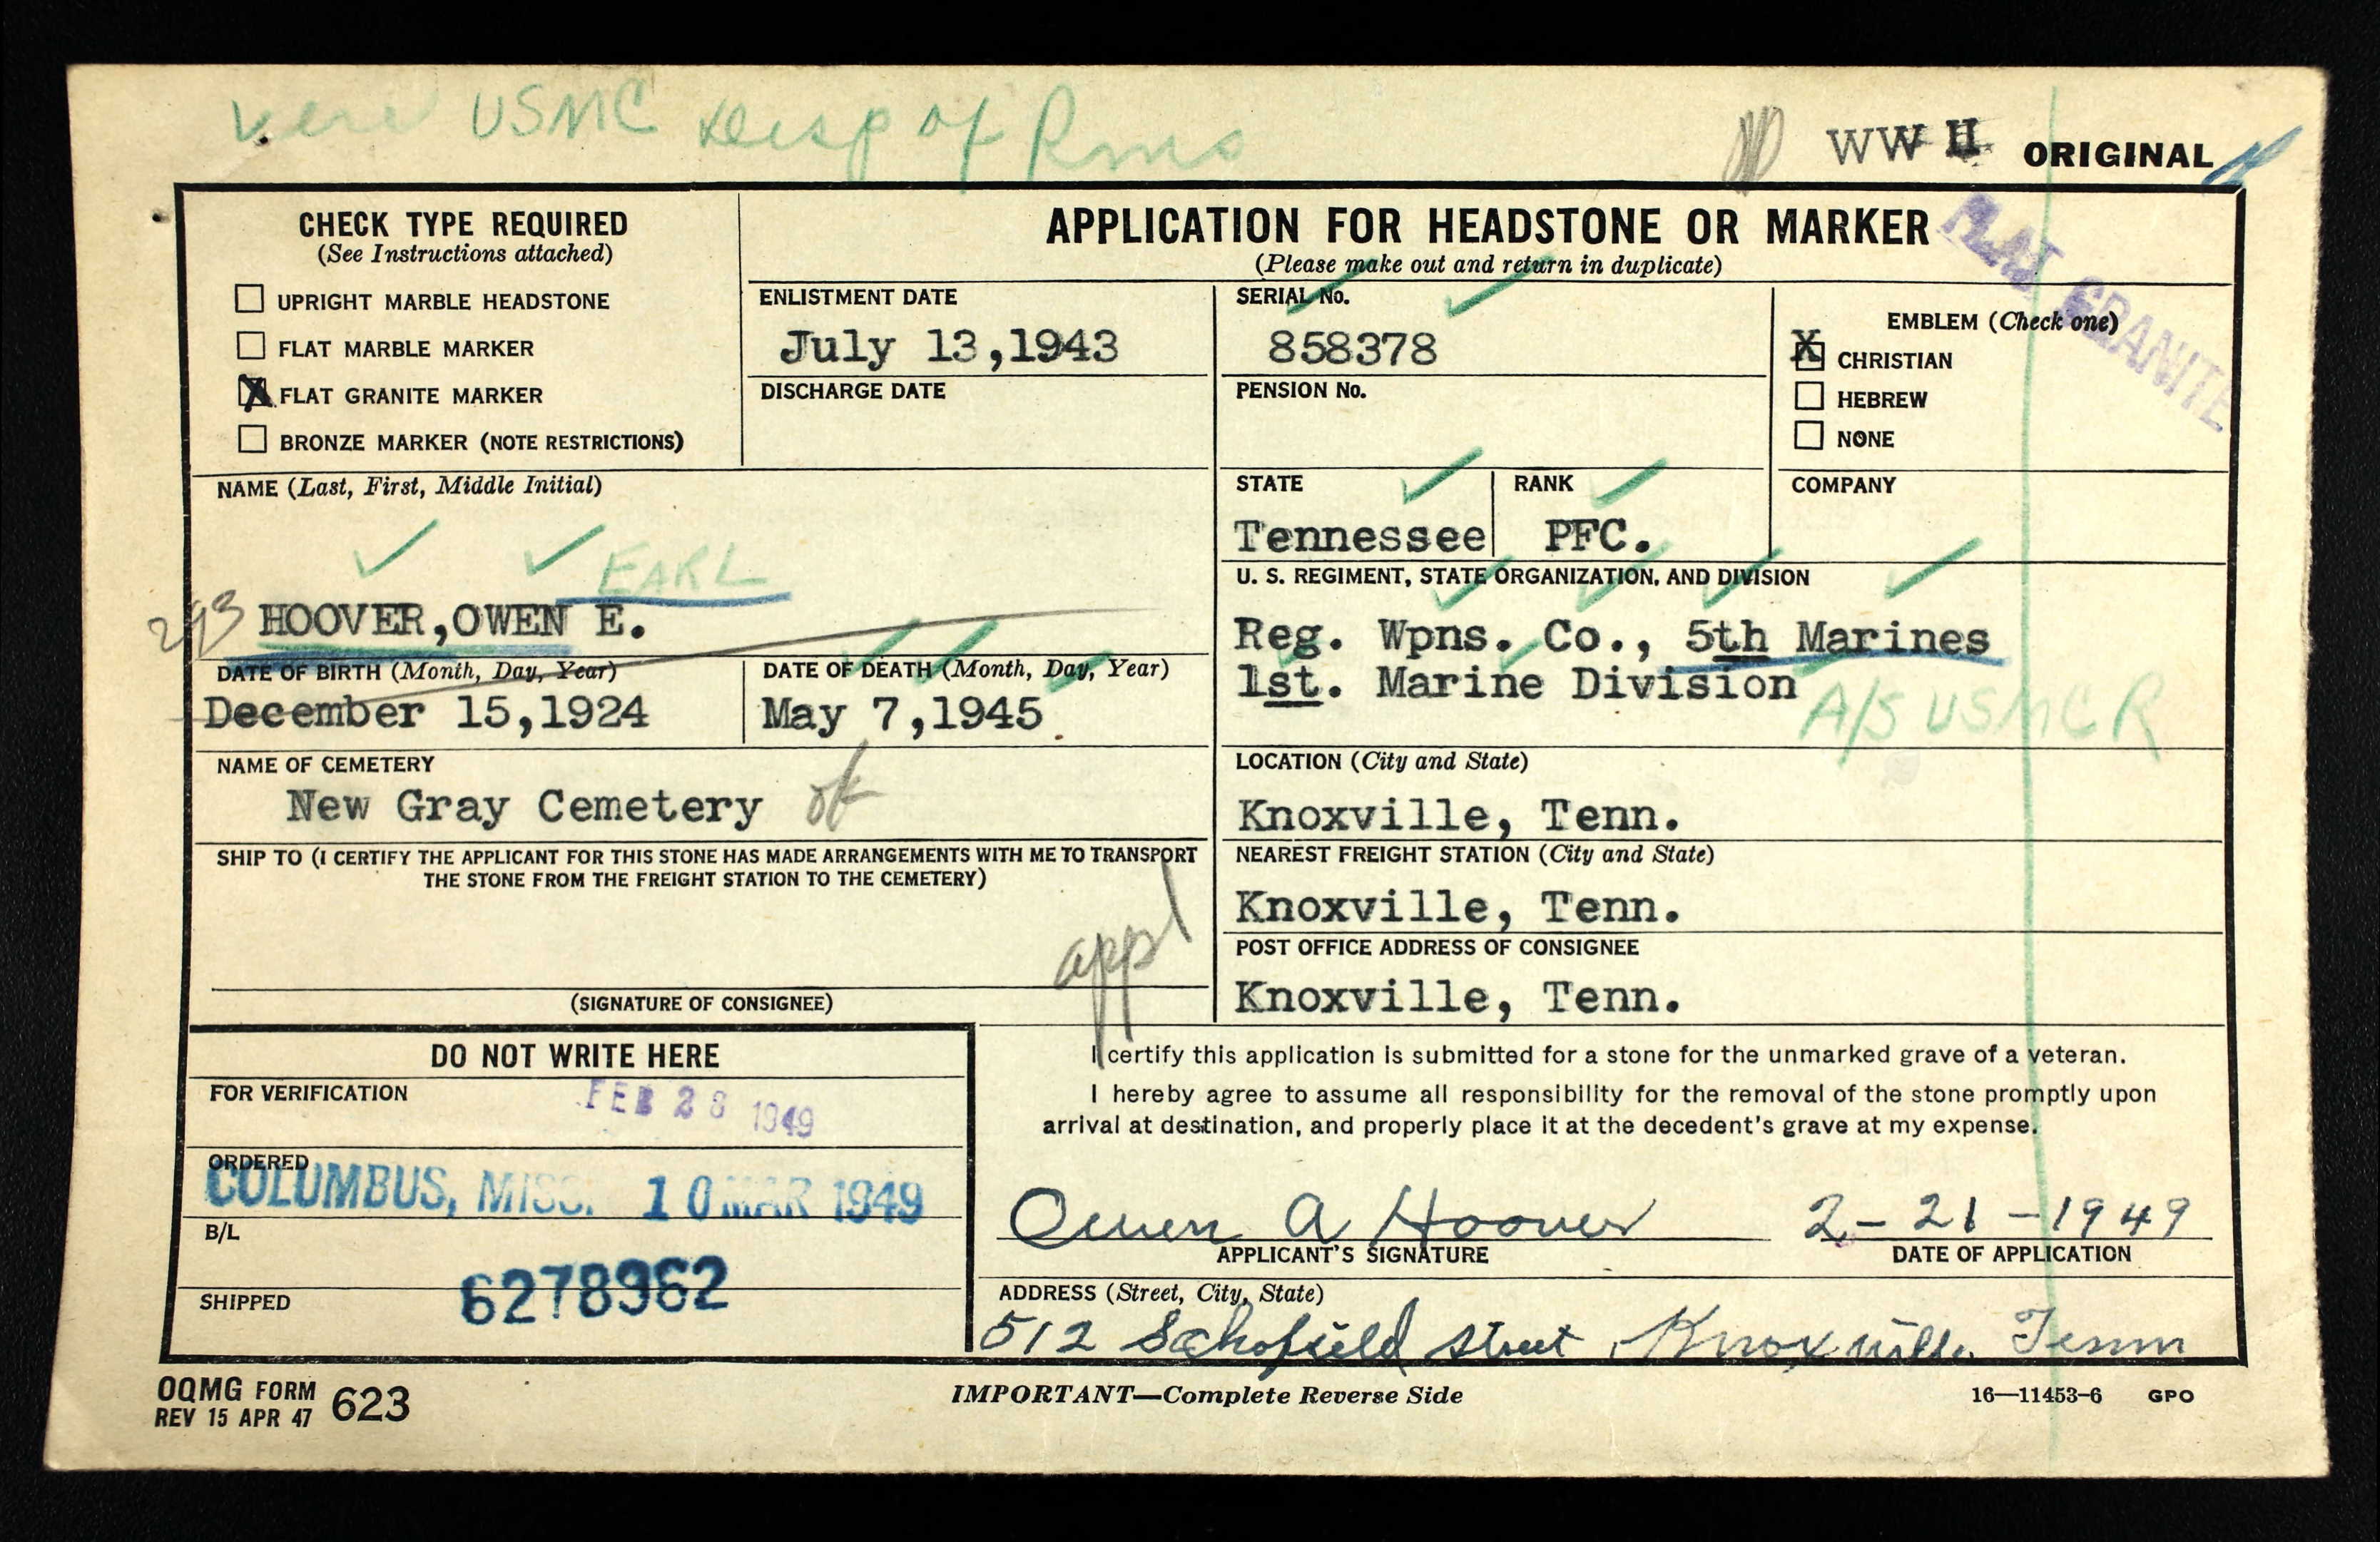 Veri USMC Disp of Rms
WW II ORIGINAL
CHECK TYPE REQUIRED
(See Instructions attached)
UPRIGHT MARBLE HEADSTONE
FLAT MARBLE MARKER
X FLAT GRANITE MARKER
BRONZE MARKER (NOTE RESTRICTIONS)
APPLICATION FOR HEADSTONE OR MARKER
(Please make out and return in duplicate)
FLAT GRANITE
ENLISTMENT DATE
July 13,1943
DISCHARGE DATE
SERIAL No.
858378
PENSION No.
EMBLEM (Check one)
X CHRISTIAN
HEBREW
NONE
NAME (Last, First, Middle Initial)
EARL
293 HOOVER,OWEN E.
STATE
Tennessee
RANK
PFC.
COMPANY
U. S. REGIMENT, STATE ORGANIZATION, AND DIVISION
Reg. Wpns. Co., 5th Marines
1st. Marine Division
A/S USMCR
DATE OF BIRTH (Month, Day, Year)
December 15,1924
DATE OF DEATH (Month, Day, Year)
May 7,1945
NAME OF CEMETERY
New Gray Cemetery ok
LOCATION (City and State)
Knoxville, Tenn.
SHIP TO (I CERTIFY THE APPLICANT FOR THIS STONE HAS MADE ARRANGEMENTS WITH ME TO TRANSPORT
THE STONE FROM THE FREIGHT STATION TO THE CEMETERY)
appl
(SIGNATURE OF CONSIGNEE)
NEAREST FREIGHT STATION (City and State)
Knoxville, Tenn.
POST OFFICE ADDRESS OF CONSIGNEE
Knoxville, Tenn.
DO NOT WRITE HERE
FOR VERIFICATION
FEB 28 1949
ORDERED
COLUMBUS, MISS. 10 MAR 1949
B/L
6278962
SHIPPED
I certify this application is submitted for a stone for the unmarked grave of a veteran.
I hereby agree to assume all responsibility for the removal of the stone promptly upon
arrival at destination, and properly place it at the decedent's grave at my expense.
Owen A Hoover 2-21-1949
APPLICANT'S SIGNATURE DATE OF APPLICATION
ADDRESS (Street, City, State)
512 Schofield Street, Knoxville, Tenn
OQMG FORM 623
REV 15 APR 47
IMPORTANT—Complete Reverse Side
16—11453-6 GPO